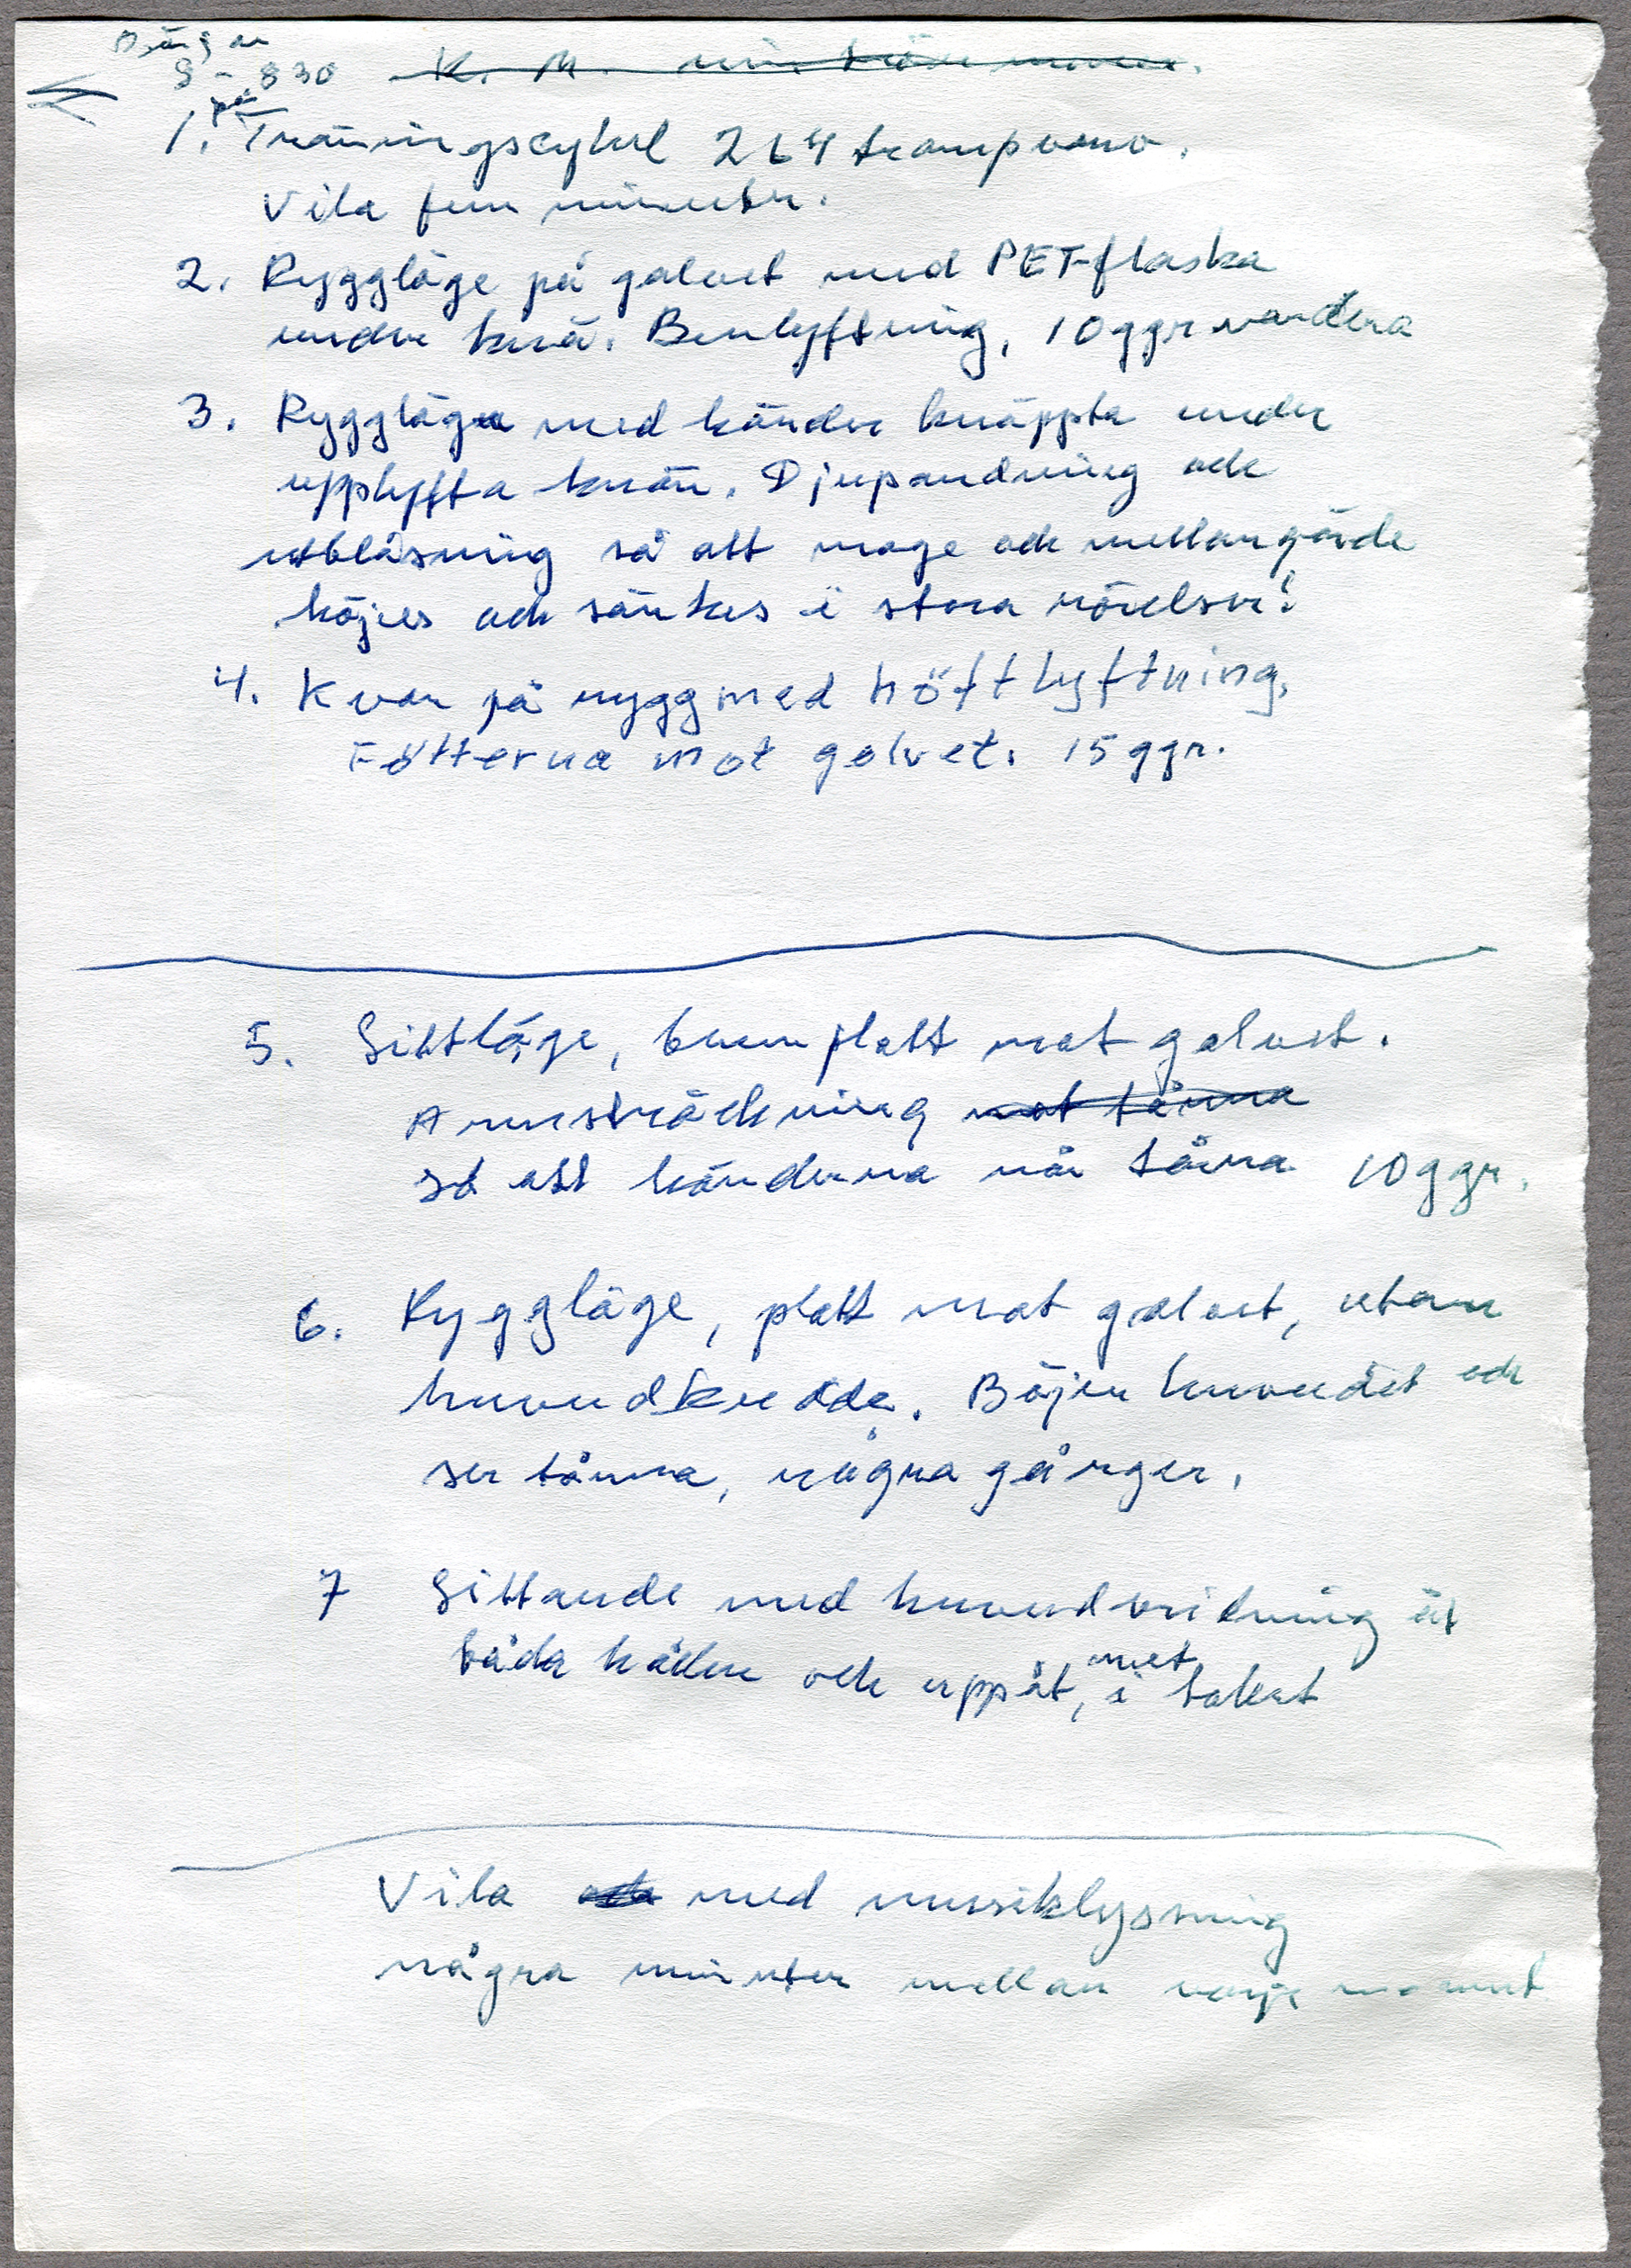 8 - 830 K. M.
1. på Träningscykel 264 trampvarv.
Vila fem minuter.
2. Ryggläge på golvet med PET-flaska
under knä. Benlyftning, 10 ggr vardera
3. Ryggläge med händer knäppta under
upplyfta knän. Djupandning och
utblåsning så att mage och mellangärde
höjes och sänkes i stora rörelser!
4. Kvar på rygg med höftlyftning,
Fötterna mot golvet. 15 ggr.
5. Sittläge, benen platt mot golvet.
Armsträckning mot tårna
så att händerna når tårna 10 ggr.
6. Ryggläge, platt mot golvet, utan
huvudkudde. Böjer huvudet och
ser tårna, några gånger.
7 Sittande med huvudvridning åt
båda hållen och uppåt, mot i taket
Vila och med musiklyssning
några minuter mellan varje moment